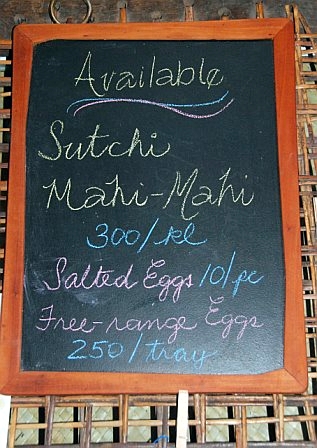 Available
Sutchi
Mahi-Mahi
300/kl
Salted Eggs 10/pc
Free-range Eggs
250/tray